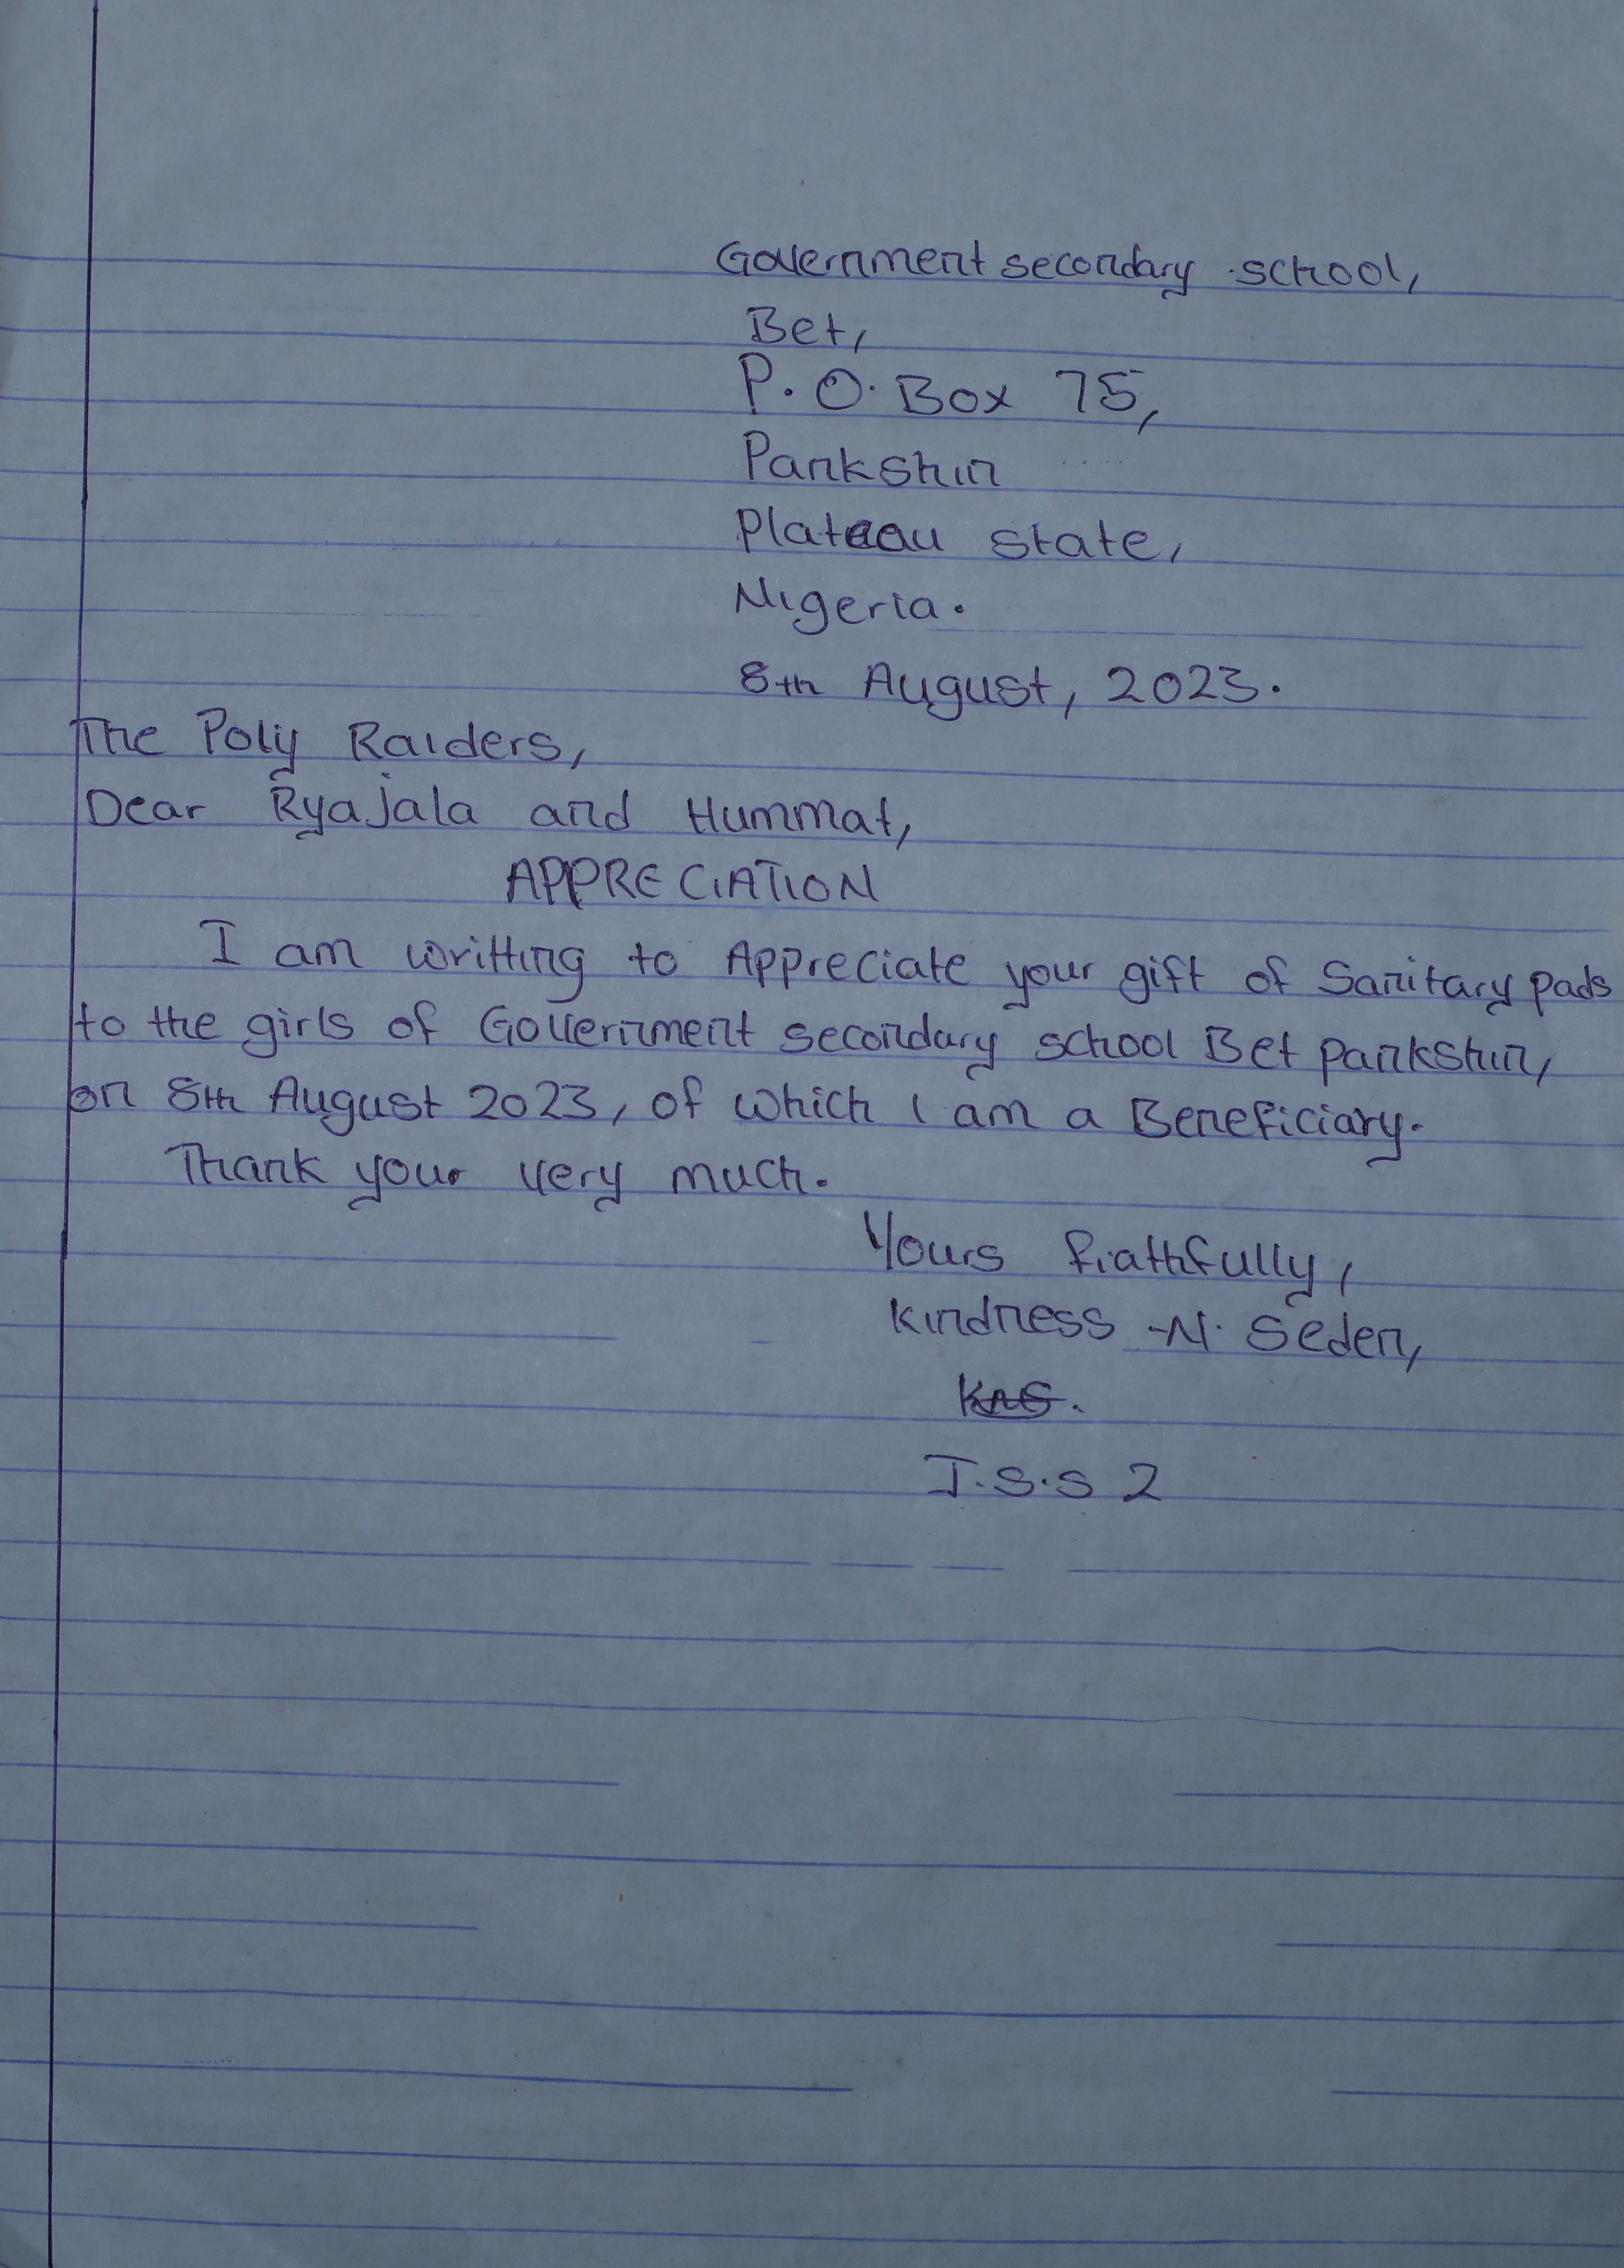 Government secondary school,
Bet,
P.O. Box 75,
Pankshin
Plateau state,
Nigeria.
8th August, 2023.
The Poly Raiders,
Dear Ryajala and Hummat,
APPRECIATION
I am writting to Appreciate your gift of Sanitary pads
to the girls of Government secondary school Bet pankshin,
on 8th August 2023, of which I am a Beneficiary.
Thank your very much.
Yours fiathfully,
Kindness -N. Seden,
J.S.S 2